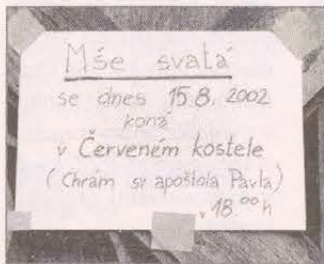 Mše svatá
se dnes 15.8. 2002
koná
v Červeném kostele
(Chrám sv apoštola Pavla)
v 18.00 h